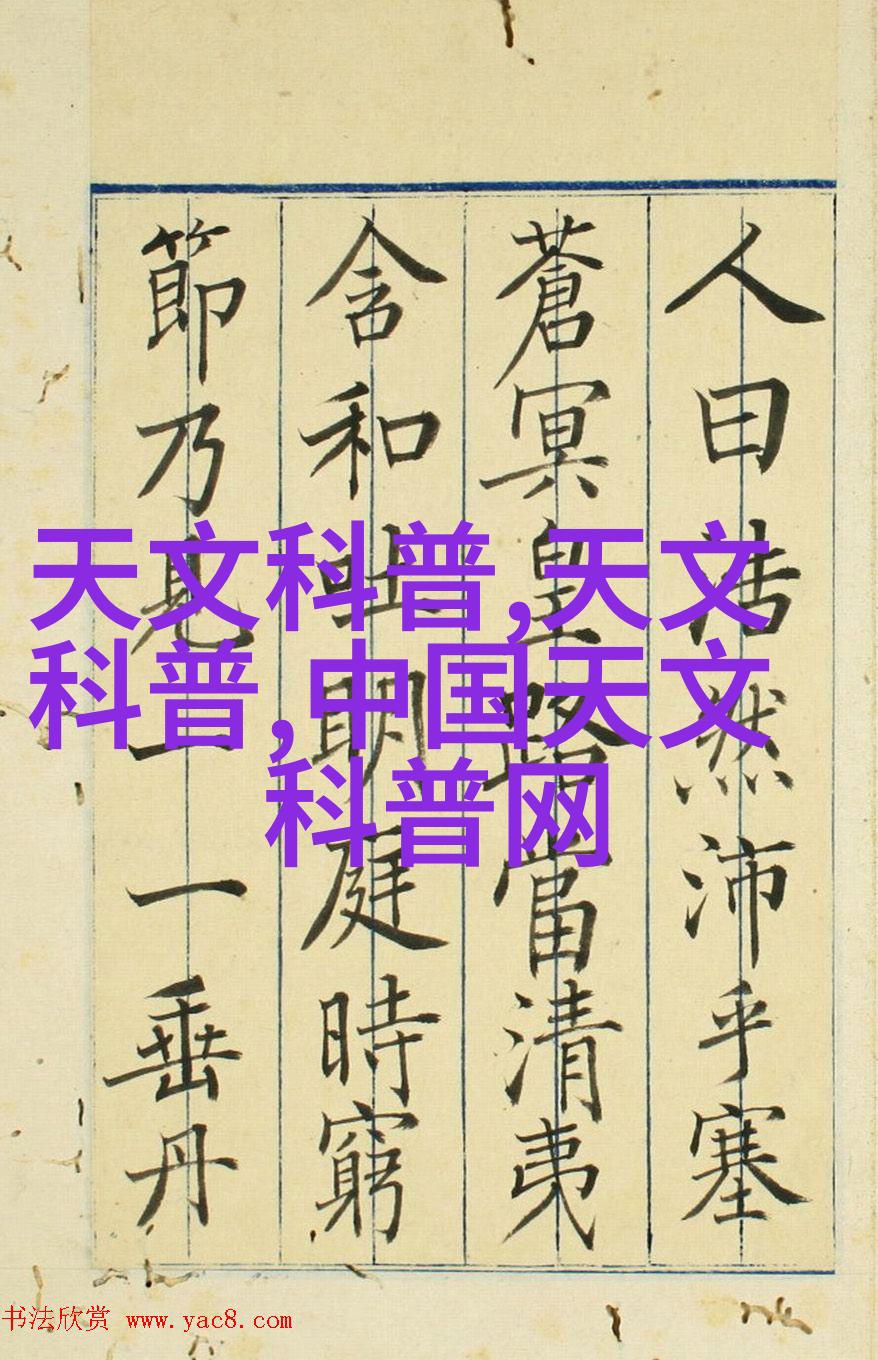 人曰浩然沛乎塞
蒼冥皇路當清夷
含和吐明庭時窮
節乃見一一垂丹
天文科普,天文
科普,中国天文
科普网
书法欣赏 www.yac8.com